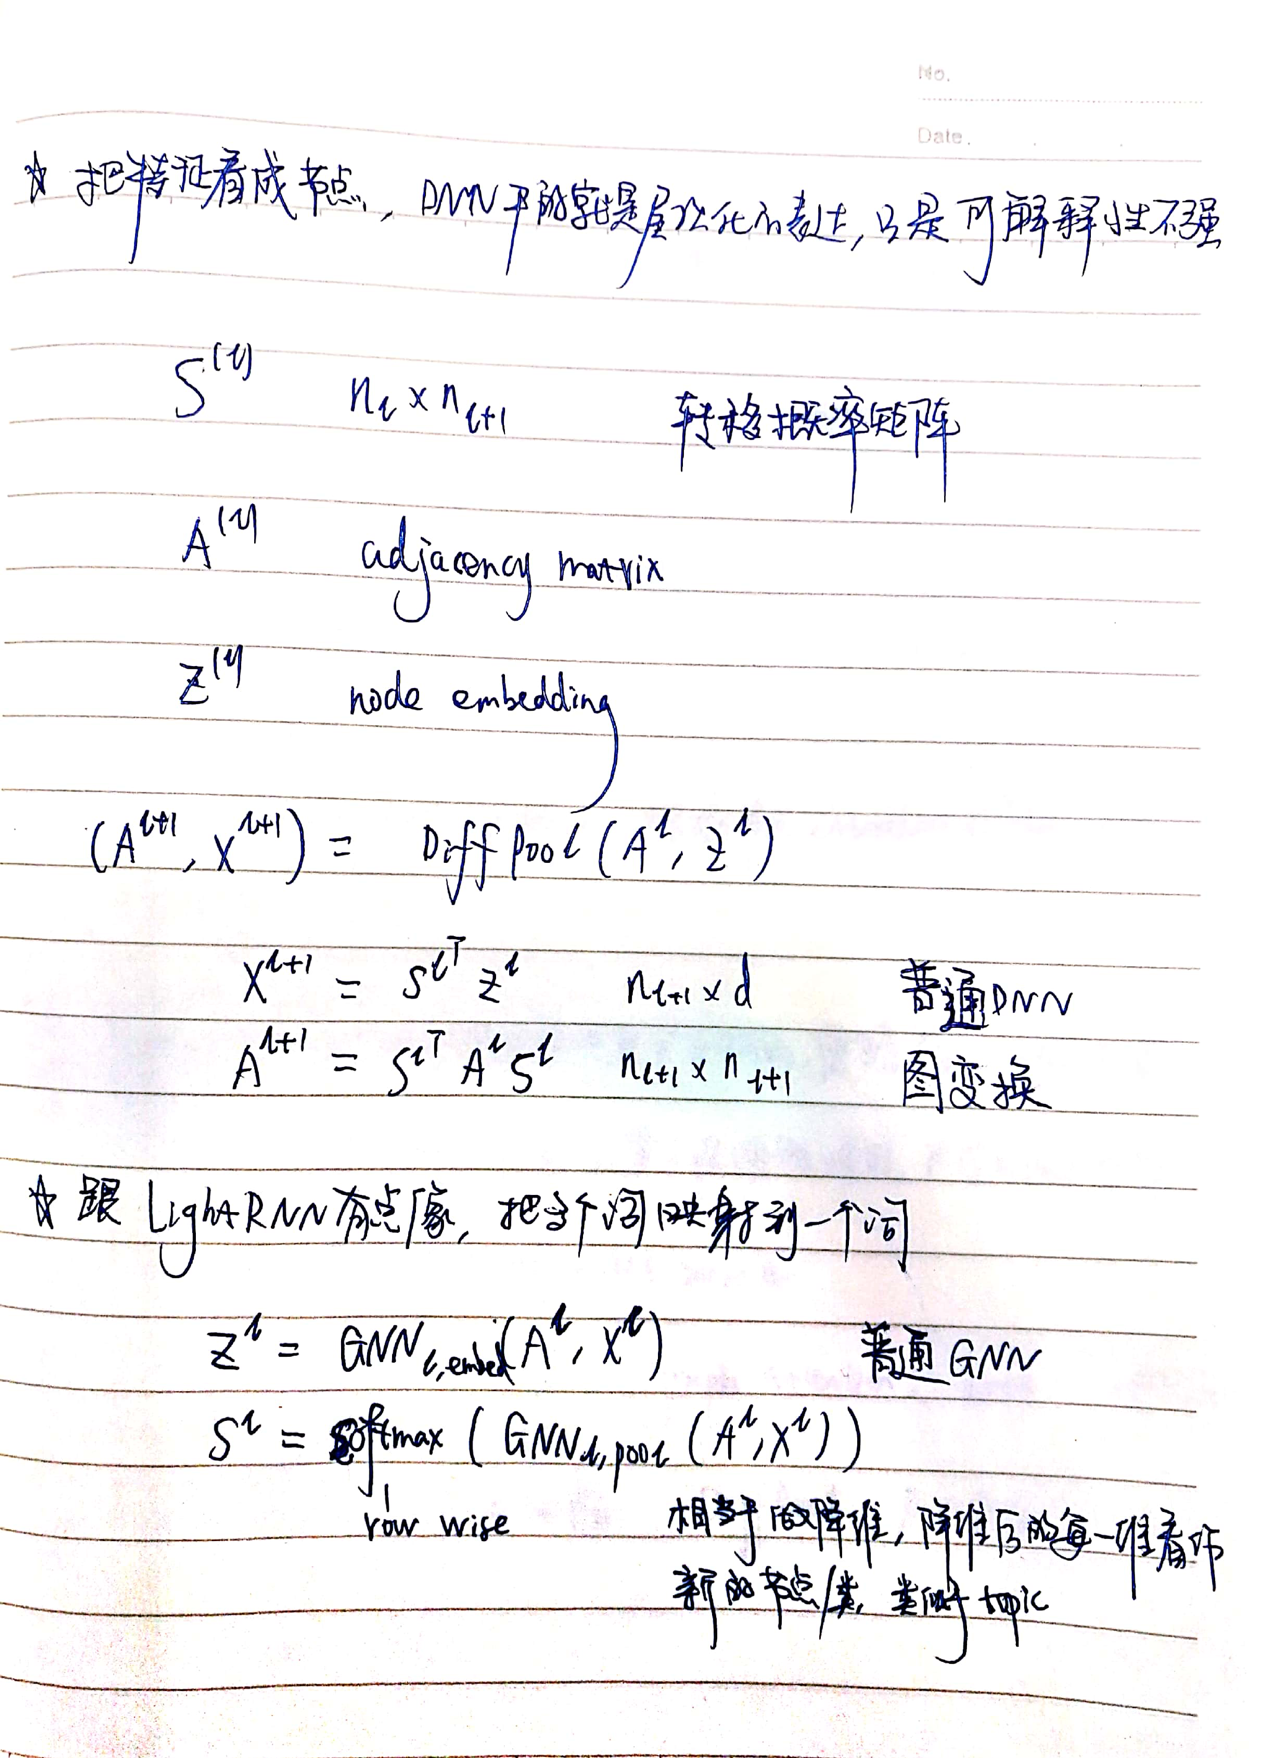 No.
Date.
☆ 把特征看成节点, DNN 干的就是层次化的表达, 只是可解释性不强
S^(l) n_l × n_{l+1} 转移概率矩阵
A^(l) adjacency matrix
Z^(l) node embedding
(A^{l+1}, X^{l+1}) = Diffpool (A^l, Z^l)
X^{l+1} = S^{l T} Z^l n_{l+1} × d 普通DNN
A^{l+1} = S^{l T} A^l S^l n_{l+1} × n_{l+1} 图变换
☆ 跟 LightRNN 有点像, 把多个词映射到一个词
Z^l = GNN_{l,embed} (A^l, X^l) 普通GNN
S^l = softmax (GNN_{l,pool} (A^l, X^l))
row wise 相当于做降维, 降维后的每一维看作
新的节点/类, 类似于 topic